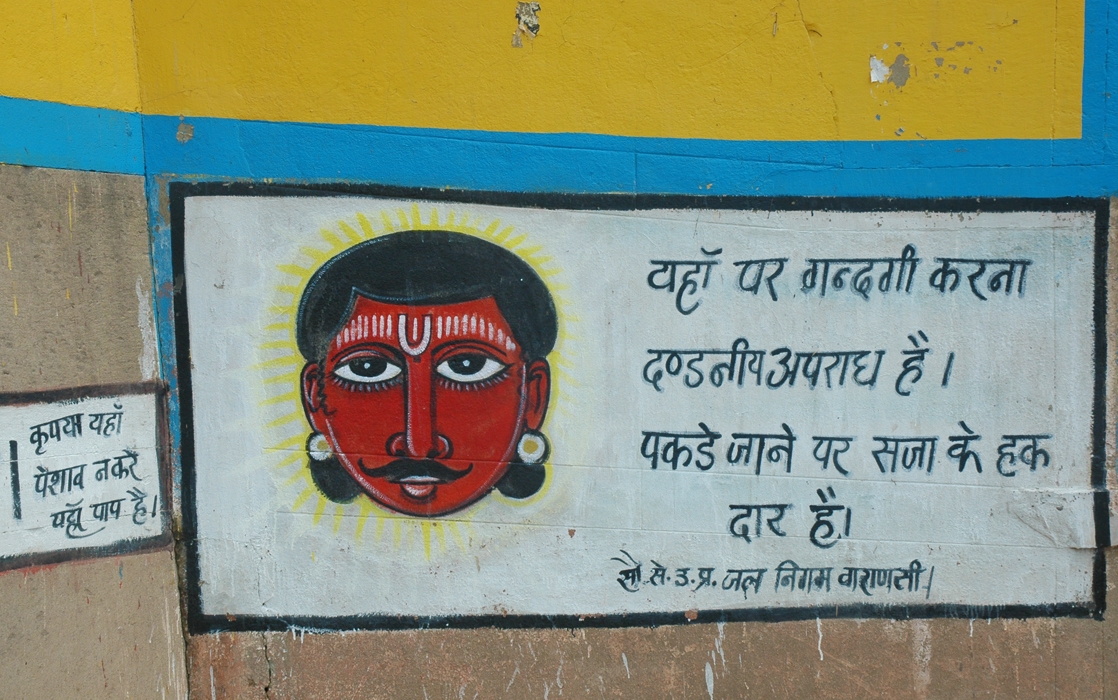 कृपया यहाँ
पेशाब न करें
यहाँ पाप है।
यहाँ पर गन्दगी करना
दण्डनीय अपराध है।
पकडे जाने पर सजा के हक
दार है।
सौ. से. उ. प्र. जल निगम वाराणसी।